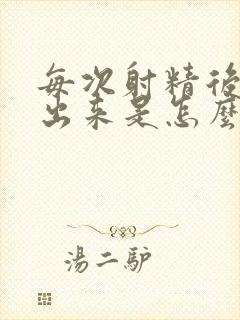 每次射精後
出来是怎麼
湯二驴